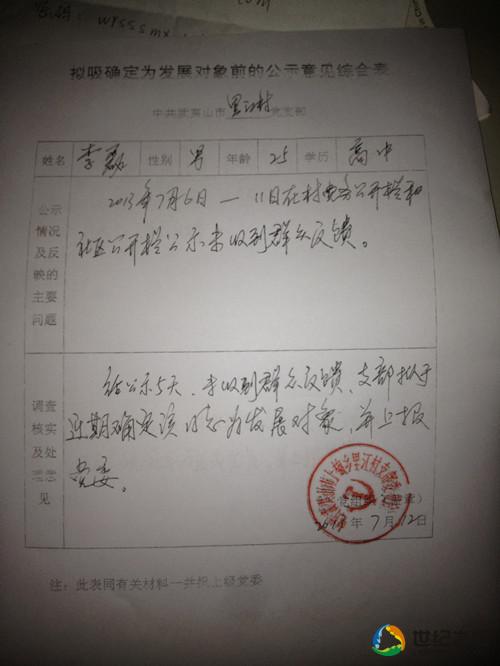 wysssmx
拟吸确定为发展对象前的公示意见综合表
中共武夷山市里江村党支部
姓名 李磊 性别 男 年龄 25 学历 高中
公示情况及反映的主要问题
2013年7月6日—11日在村党务公开栏和
社区公开栏公示未收到群众反馈。
调查核实及处理意见
经公示5天,未收到群众反馈,支部拟于
近期确定该同志为发展对象,并上报
党委。
年7月12日
注:此表同有关材料一共报上级党委
世纪